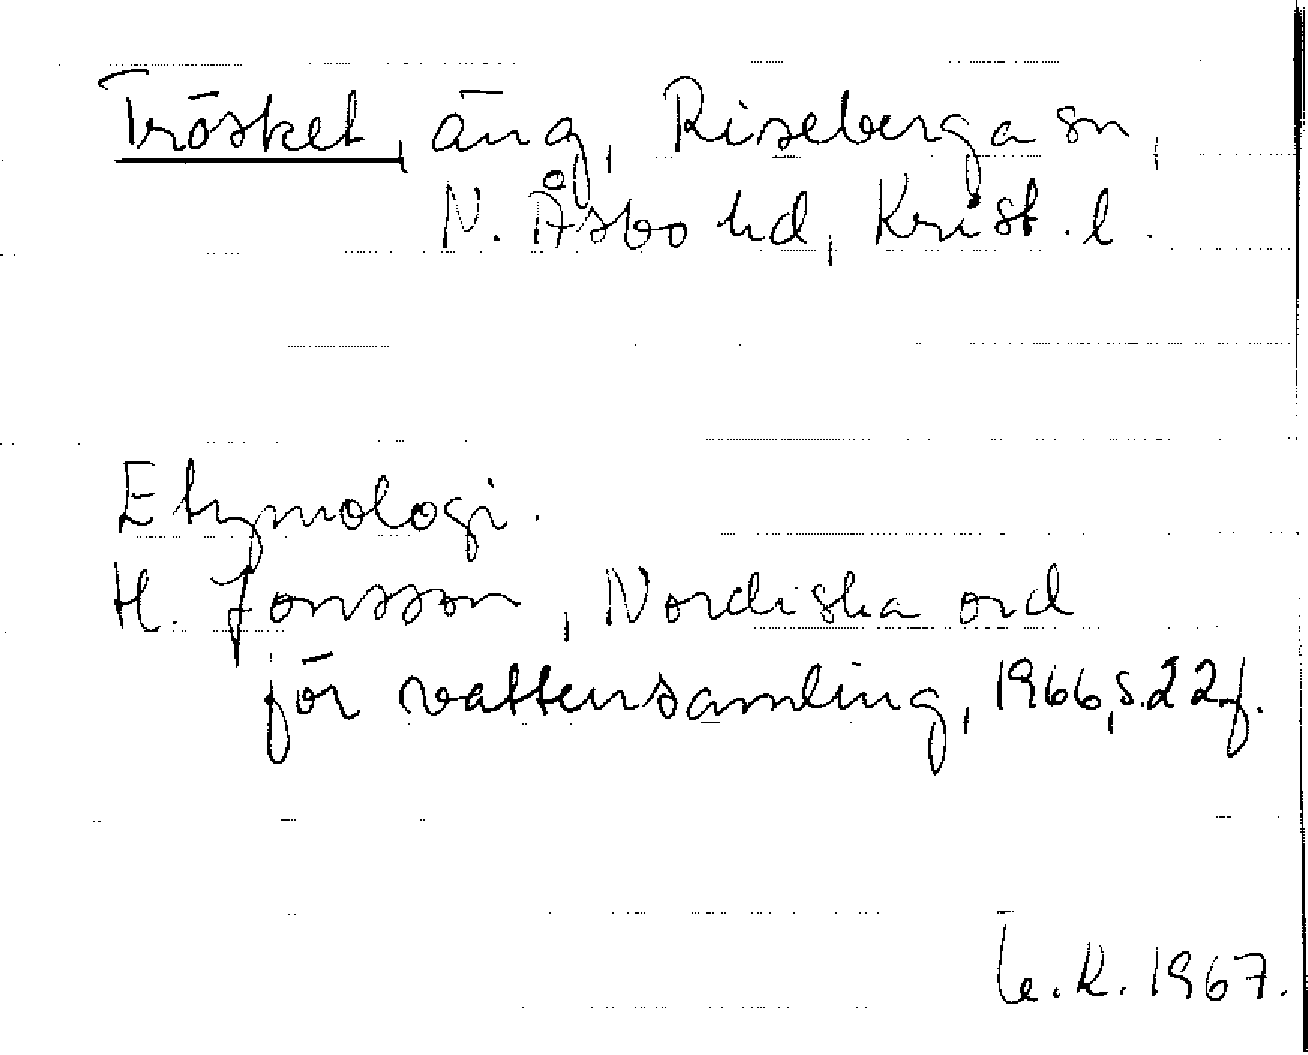 Trösket, äng, Riseberga sn,
N. Åsbo hd, Krist. l.
Etymologi.
H. Jonsson, Nordiska ord
för vattensamling, 1966, s. 22 f.
1967.